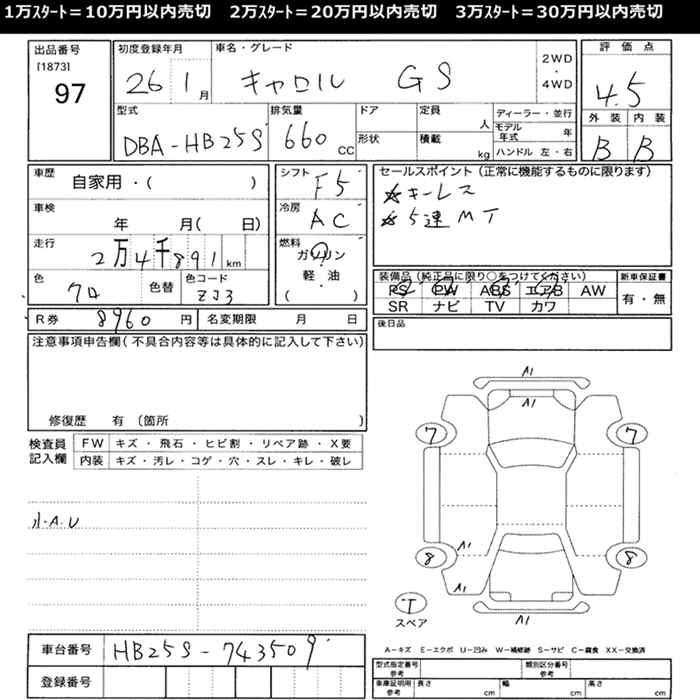 1万スタート＝10万円以内売切　2万スタート＝20万円以内売切　3万スタート＝30万円以内売切
出品番号
[1873]
97
初度登録年月
26 1月
車名・グレード
キャロル GS
2WD
・
4WD
評価点
4.5
外装 内装
B B
型式
DBA-HB25S
排気量
660 CC
ドア
形状
定員 人
積載 kg
ディーラー・並行
モデル年式 年
ハンドル 左・右
車歴
自家用・( )
車検
年 月( 日)
走行
2万4千891 km
色
クロ
色替
色コード
ZJ3
シフト
F5
冷房
AC
燃料
ガソリン
・
軽・油
( )
セールスポイント (正常に機能するものに限ります)
☆キーレス
☆5速MT
装備品 (純正品に限り○をつけてください)
PS PW ABS エアB AW
SR ナビ TV カワ
新車保証書
有・無
R券 8960 円
名変期限 月 日
後日品
注意事項申告欄(不具合内容等は具体的に記入して下さい)
修復歴 有 〔箇所 〕
検査員記入欄
FW キズ・飛石・ヒビ割・リペア跡・X要
内装 キズ・汚レ・コゲ・穴・スレ・キレ・破レ
小・A.U
A1
A1
7
7
8
8
A1
A1
A1
A1
T
スペア
車台番号
HB25S-743509
登録番号
A－キズ E－エクボ U－凹み W－補修跡 S－サビ C－腐食 XX－交換済
型式指定番号
参考
類別区分番号
参考
車庫証明用
参考
長さ cm
幅 cm
高さ cm